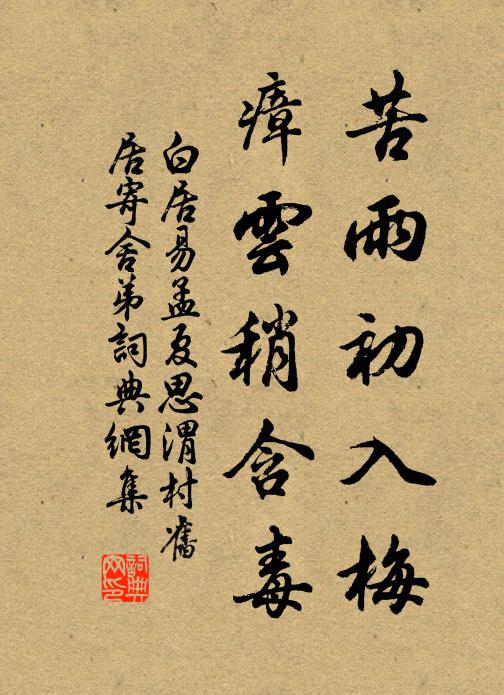 苦雨初入梅
瘴雲稍含毒
白居易孟夏思渭村舊
居寄舍弟詞典網集
詞典
网印